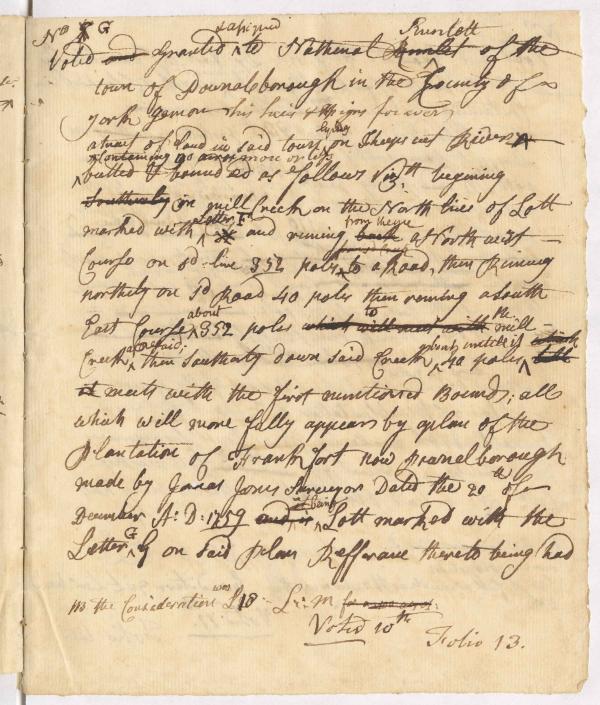 No G
& assigned Runlett
Voted and Granted to Nathanal Runlet of the
town of Pownalsborough in the County of
york yemon his heirs & assigns forever
a tract of Land in said town lying on Sheepscut River
Containing 90 acres more or less
butted & bounded as follows Vizth begining
Southerly on mill Creek on the North line of Lott
marked with Letter F and runing back from thence a North west
Course on sd line 352 poles to a Road, then Runing
northerly on sd Road 40 poles then runing a South
East Course about 352 poles which will meet with to the mill
Creek aforesaid; then Southerly down said Creek about 40 poles untill it which
it meets with the first mentioned Bounds; all
which will more fully appears by a plan of the
Plantation of Frankfort now Pownalborough
made by Jonas Jones Surveyor Dated the 20th of
December A: D: 1759 and is it being Lott marked with the
Letter G on said Plan Refferance thereto being had
the Consideration was £18 - L: M
Voted 10th
Folio 13.